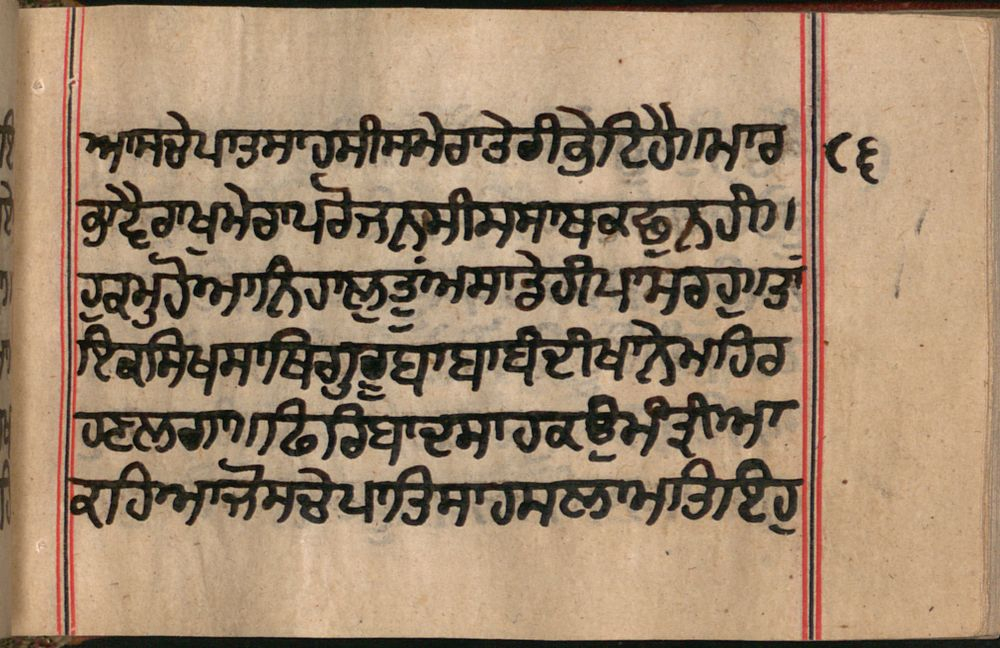 ਆਸਚੇਪਾਤਸਾਹਸੀਸਮੇਰਾਤੇਰੀਭੇਟਿਹੈ॥ਮਾਰ ੮੬
ਭਾਵੈਰਾਖੁਮੇਰਾਪਰੋਜਨਸੀਸਸਾਥਕਛੁਨਹੀ॥
ਹੁਕਮੁਹੋਆਨਿਹਾਲੁਤੂੰਅਸਾਡੇਹੀਪਾਸਰਹੁ॥ਤਾਂ
ਇਕਸਿਖਸਾਥਿਗੁਰੂਬਾਬਾਬੰਦੀਖਾਨੇਮਾਹਿਰ
ਹਣਲਗਾ॥ਫਿਰਿਬਾਦਸਾਹਕਉਮੰਤ੍ਰੀਆ
ਕਹਿਆਜੋਸਚੇਪਾਤਿਸਾਹਸਲਾਮਤਿਇਹੁ